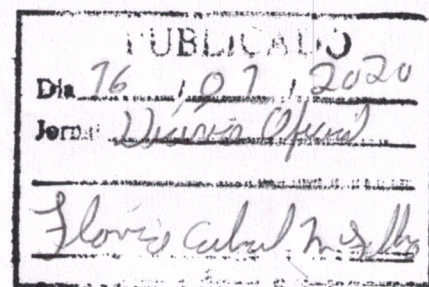 PUBLICADO
Dia 16 / 07 / 2020
Jornal Diário Oficial
Flavio Cabral